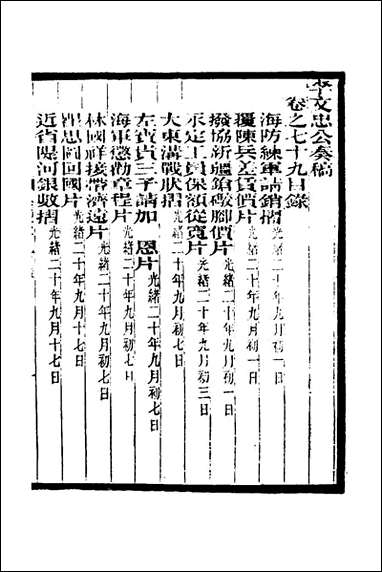 李文忠公奏稿
卷之七十九目錄
海防練軍請銷摺 光緒二十年九月初一日
覆陳兵差貨價片 光緒二十年九月初一日
撥協新疆鎗礮腳價片 光緒二十年九月初一日
永定工員保額從寬片 光緒二十年九月初三日
大東溝戰狀摺 光緒二十年九月初七日
左寶貴三子請加 恩片 光緒二十年九月初七日
海軍懲勸章程片 光緒二十年九月初七日
林國祥接帶濟遠片 光緒二十年九月初七日
思回國片 光緒二十年九月十七日
近省隄河銀數摺 光緒二十年九月十七日